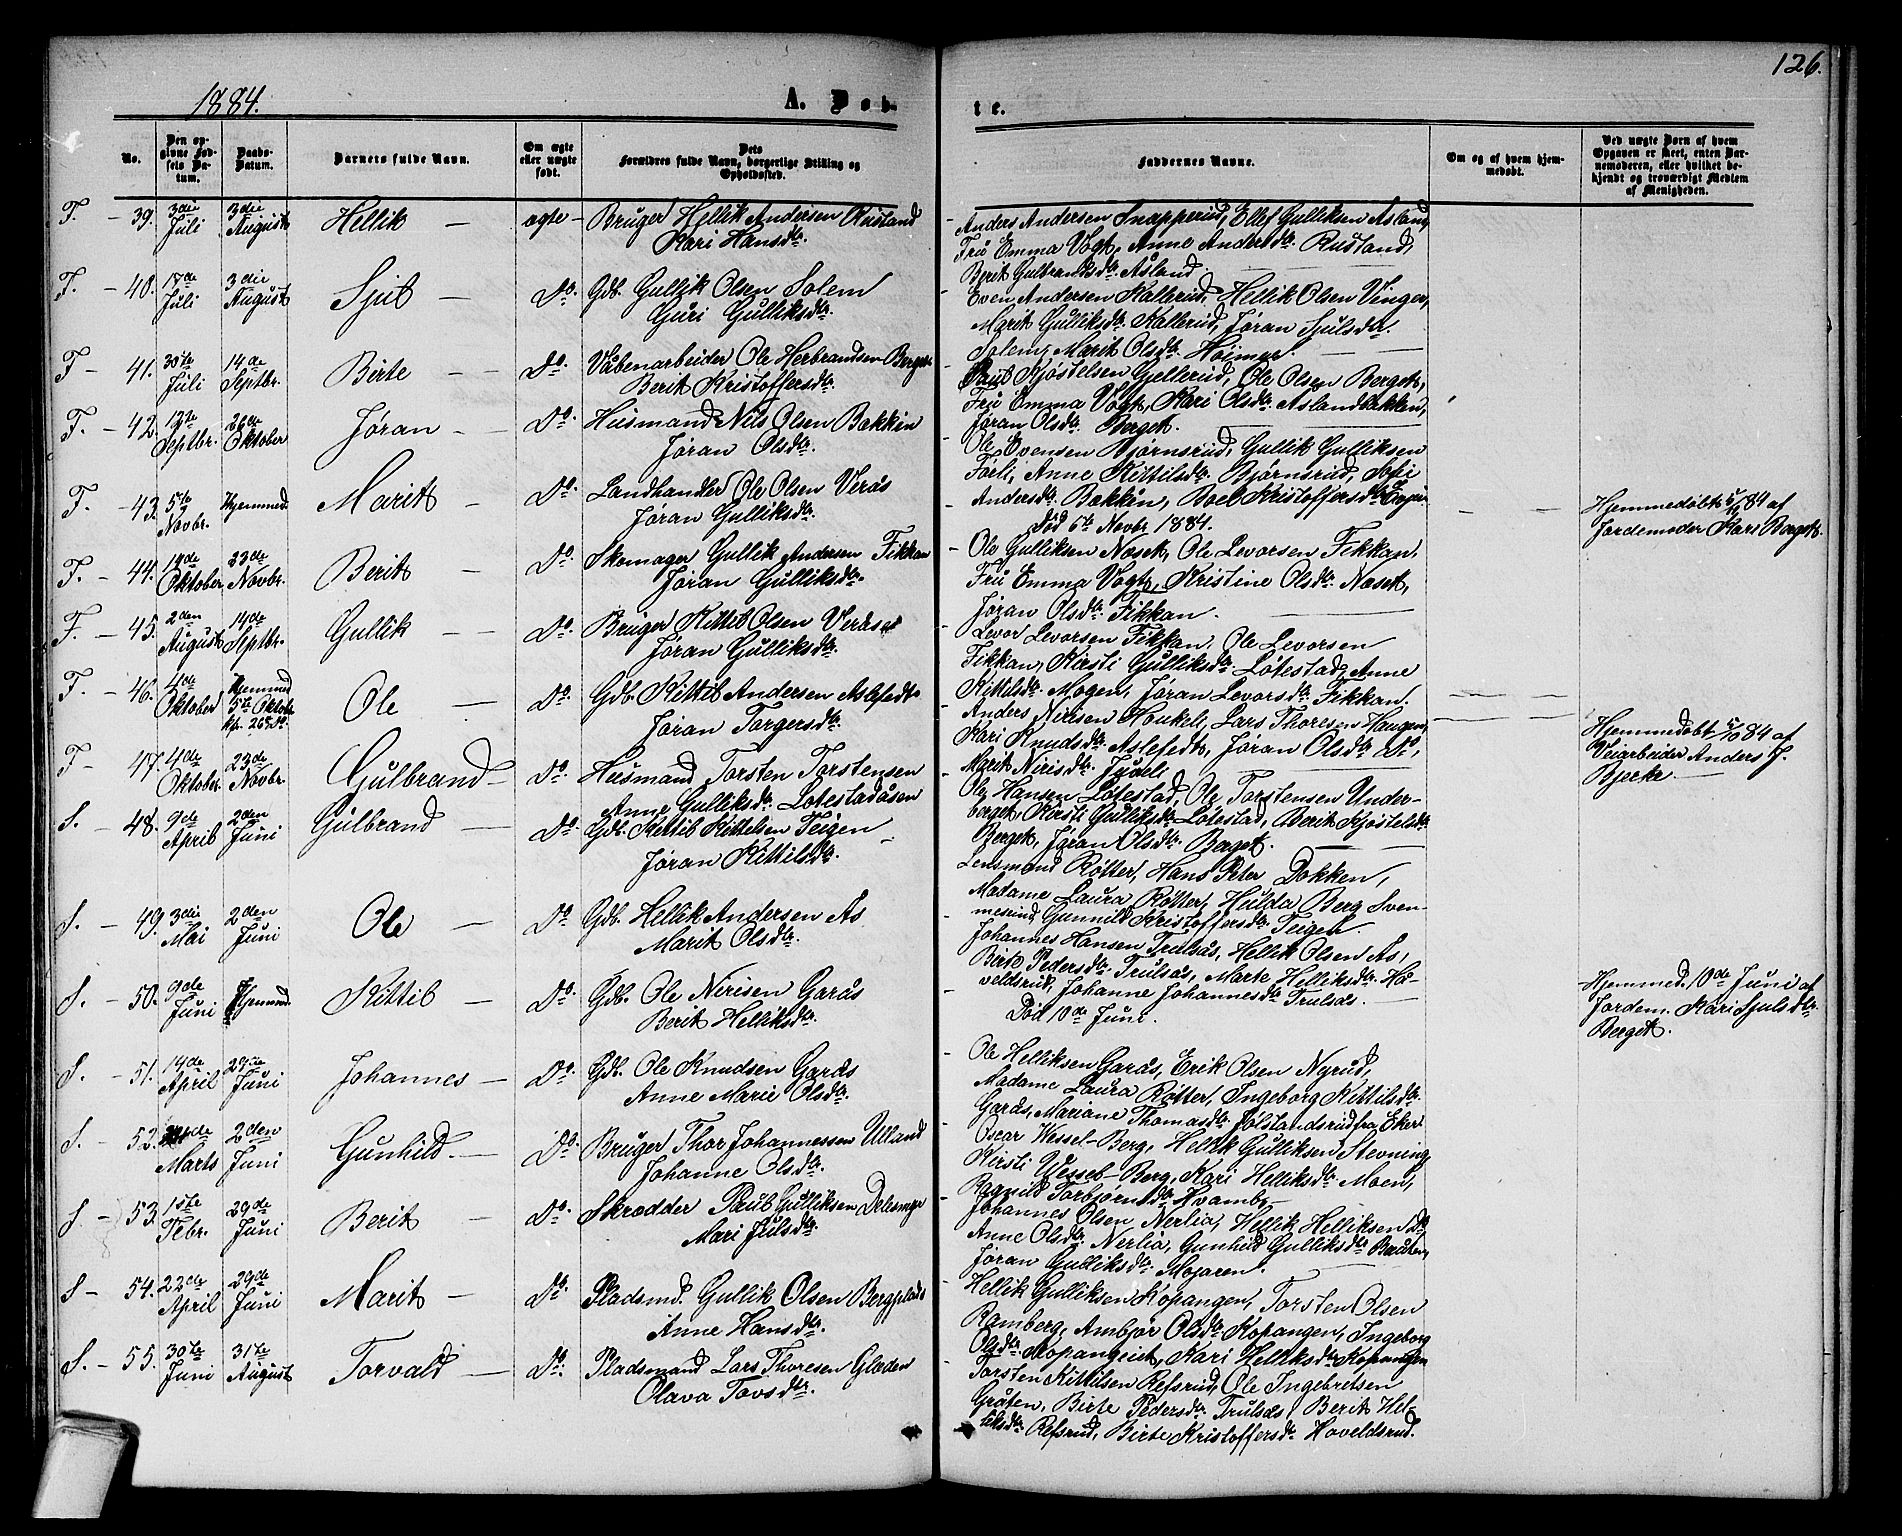 126.
1884.
A. Døb-
te.
No.
Den op-
givne Fød-
sels Da-
tum.
Daabs-
Datum.
Barnets fulde Navn.
Om ægte
eller uægte
født.
Dets
Forældres fulde Navn, borgerlige Stilling og
Opholdssted.
Faddernes Navne.
Om og af hvem hjem-
medøbt.
Ved uægte Børn af hvem
Opgaven er skeet, enten Bar-
nemoderen, eller hvilket be-
kjendt og troværdigt Medlem
af Menigheden.
F. – 39. 3die Juli 3die August Hellik – ægte – Bruger Hellik Andersen Rustand
Kari Hansdtr.
Anders Andersen Snapperud, Ellef Gulliksen Åsland,
Fru Emma Vogt, Anne Andersdtr. Rustand,
Berit Gulbransdtr. Åsland
F. – 40. 17de Juli 3die August Sjul – Do. Gdb. Gullik Olsen Solem
Guri Gulliksdtr.
Even Andersen Kallerud, Hellik Olsen Vinger,
Marit Gulliksdtr. Kallerud, Jøran Sjulsdtr.
Solem, Marit Olsdtr. Høimyr.
F – 41. 30te Juli 14de Septbr. Birte – Do. Våbenarbeider Ole Herbrandsen Berget
Berit Kristoffersdtr.
Paul Kjøstelsen Gellerud, Ole Olsen Berget,
Fru Emma Vogt, Kari Olsdtr. Åslandbakken,
Jøran Olsdtr. Berget.
F. – 42. 12te Septbr. 26de Oktober Jøran – – Do. Husmand Nils Olsen Bakkin
Jøran Olsdtr.
Ole Evensen Bjørnsrud, Gullik Gulliksen
Førli, Anne Kittilsdtr. Bjørnsrud, Sofi
Andersdtr. Bakkin, Boel Kristoffersdtr.
F. – 43. 5te Novbr. Hjemmed. Marit – Do. Landhandler Ole Olsen Verås
Jøran Gulliksdtr.
Død 6te Novbr 1884.
Hjemmedøbt 5/11 84 af
Jordemoder Kari Berget.
F. – 44. 14de Oktober 23de Novbr. Berit – Do. Skomager Gullik Andersen Fikkan
Jøran Gulliksdtr.
Ole Gulliksen Næset, Ole Levorsen Fikkan,
Fru Emma Vogt, Kristine Olsdtr. Næset,
Jøran Olsdtr. Fikkan.
F. – 45. 2den August 14de Septbr. Gullik – – Do. Bruger Kittil Olsen Verås
Jøran Gulliksdtr.
Levor Levorsen Fikkan, Ole Levorsen
Fikkan, Kirsti Gulliksdtr. Løtestad, Anne
Kittilsdtr. Mogen, Jøran Levorsdtr. Fikkan.
F. – 46. 4de Oktober Hjemmed 5te Oktober 26de Ole – Do. Gdb. Kittil Andersen Aslefedt
Jøran Torgersdtr.
Anders Nirisen Houkeli, Lars Thoresen Haugen,
Kari Knudsdtr. Aslefedt, Jøran Olsdtr. do,
Marit Nirisdtr. Jydeli
Hjemmedøbt 5/10 84 af
Veiarbeider Anders J.
Bjerke –
F – 47. 4de Oktober. 23de Novbr. Gulbrand – Do. Husmand Torsten Torstensen
Anne Gulliksdtr. Løtestadåsen
Ole Hansen Løtestad, Ole Torstensen Under-
berget, Kirsti Gulliksdtr. Løtestad, Berit Kjøstelsdtr.
Berget, Jøran Olsdtr. Berget.
S. – 48. 9de April 2den Juni Gulbrand – Do. Gdb. Kittil Kittelsen Teigen
Jøran Kittilsdtr.
Lensmand Røtter, Hans Peter Dokken,
Madame Laura Røtter, Hulda Berg Sven-
mesrud Gunnild Kristoffersdtr. Teigen
S. – 49. 3die Mai 2den Juni Ole – Do. Gdb. Hellik Andersen Ås
Marit Olsdtr.
Johannes Hansen Trulsås, Hellik Olsen Ås,
Birte Pedersdtr. Trulsås, Marte Helliksdtr. Ho-
veldsrud, Johanne Johannesdtr. Trulsås.
S. – 50. 9de Juni Hjemmed. Kittil – Do. Gdb. Ole Nirisen Garås
Berit Helliksdtr.
Død 10de Juni.
Hjemmed. 10de Juni af
Jordem. Kari Sjulsdtr.
Berget.
S. – 51. 14de April 29de Juni Johannes – Do. Gdb. Ole Knudsen Garås
Anne Marie Olsdtr.
Ole Helliksen Garås, Erik Olsen Nyrud,
Madame Laura Røtter, Ingeborg Kittilsdtr.
Garås, Mariane Thomasdtr. Jølstandsrud fra Eker
S. – 52. Marts 2den Juni Gunhild. – Do. Bruger Thor Johannessen Ulland
Johanne Olsdtr.
Oscar Wessel-Berg, Hellik Gulliksen Stevning
Kirsti Wessel-Berg, Kari Helliksdtr. Moen,
Ragnild Torbjørnsdtr. Hvamb.
S – 53. 1ste Febr. 29de Juni Berit – Do. Skrædder Paul Gulliksen
Mari Julsdtr.
Johannes Olsen Nerlia, Hellik Helliksen
Anne Olsdtr. Nerlia, Gunhild Gulliksdtr. Bråten,
Jøran Gulliksdtr. Mojaren.
S – 54. 22de April 29de Juni Marit – Do. Pladsmd. Gullik Olsen Bergplads
Anne Hansdtr.
Hellik Gulliksen Kopangen, Torsten Olsen
Ramberg, Ambjør Olsdtr. Kopangen, Ingeborg
Olsdtr. Kopangeiet, Kari Helliksdtr. Kopangen
S. – 55. 30te Juni 31te August Torvald – Do. Pladsmand Lars Thoresen Gloden
Olava Tovsdtr.
Torsten Kittilsen Refsrud, Ole Ingebretsen
Gråten, Birte Pedersdtr. Trulsås, Berit Hel-
liksdtr. Refsrud, Birte Kristoffersdtr. Hoveldsrud.